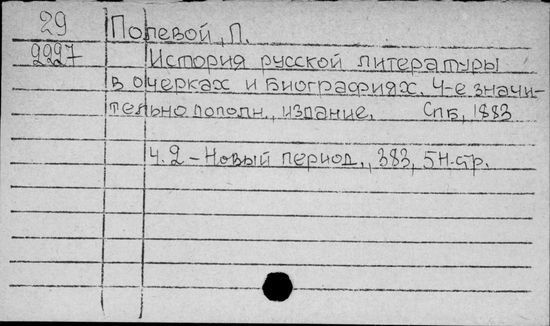 29 Полевой, П.
2227 История русской литературы
в очерках и биографиях. 4-е значи-
тельно пополн. издание. Спб, 1883
Ч. 2 - Новый период., 383, 5н.стр.